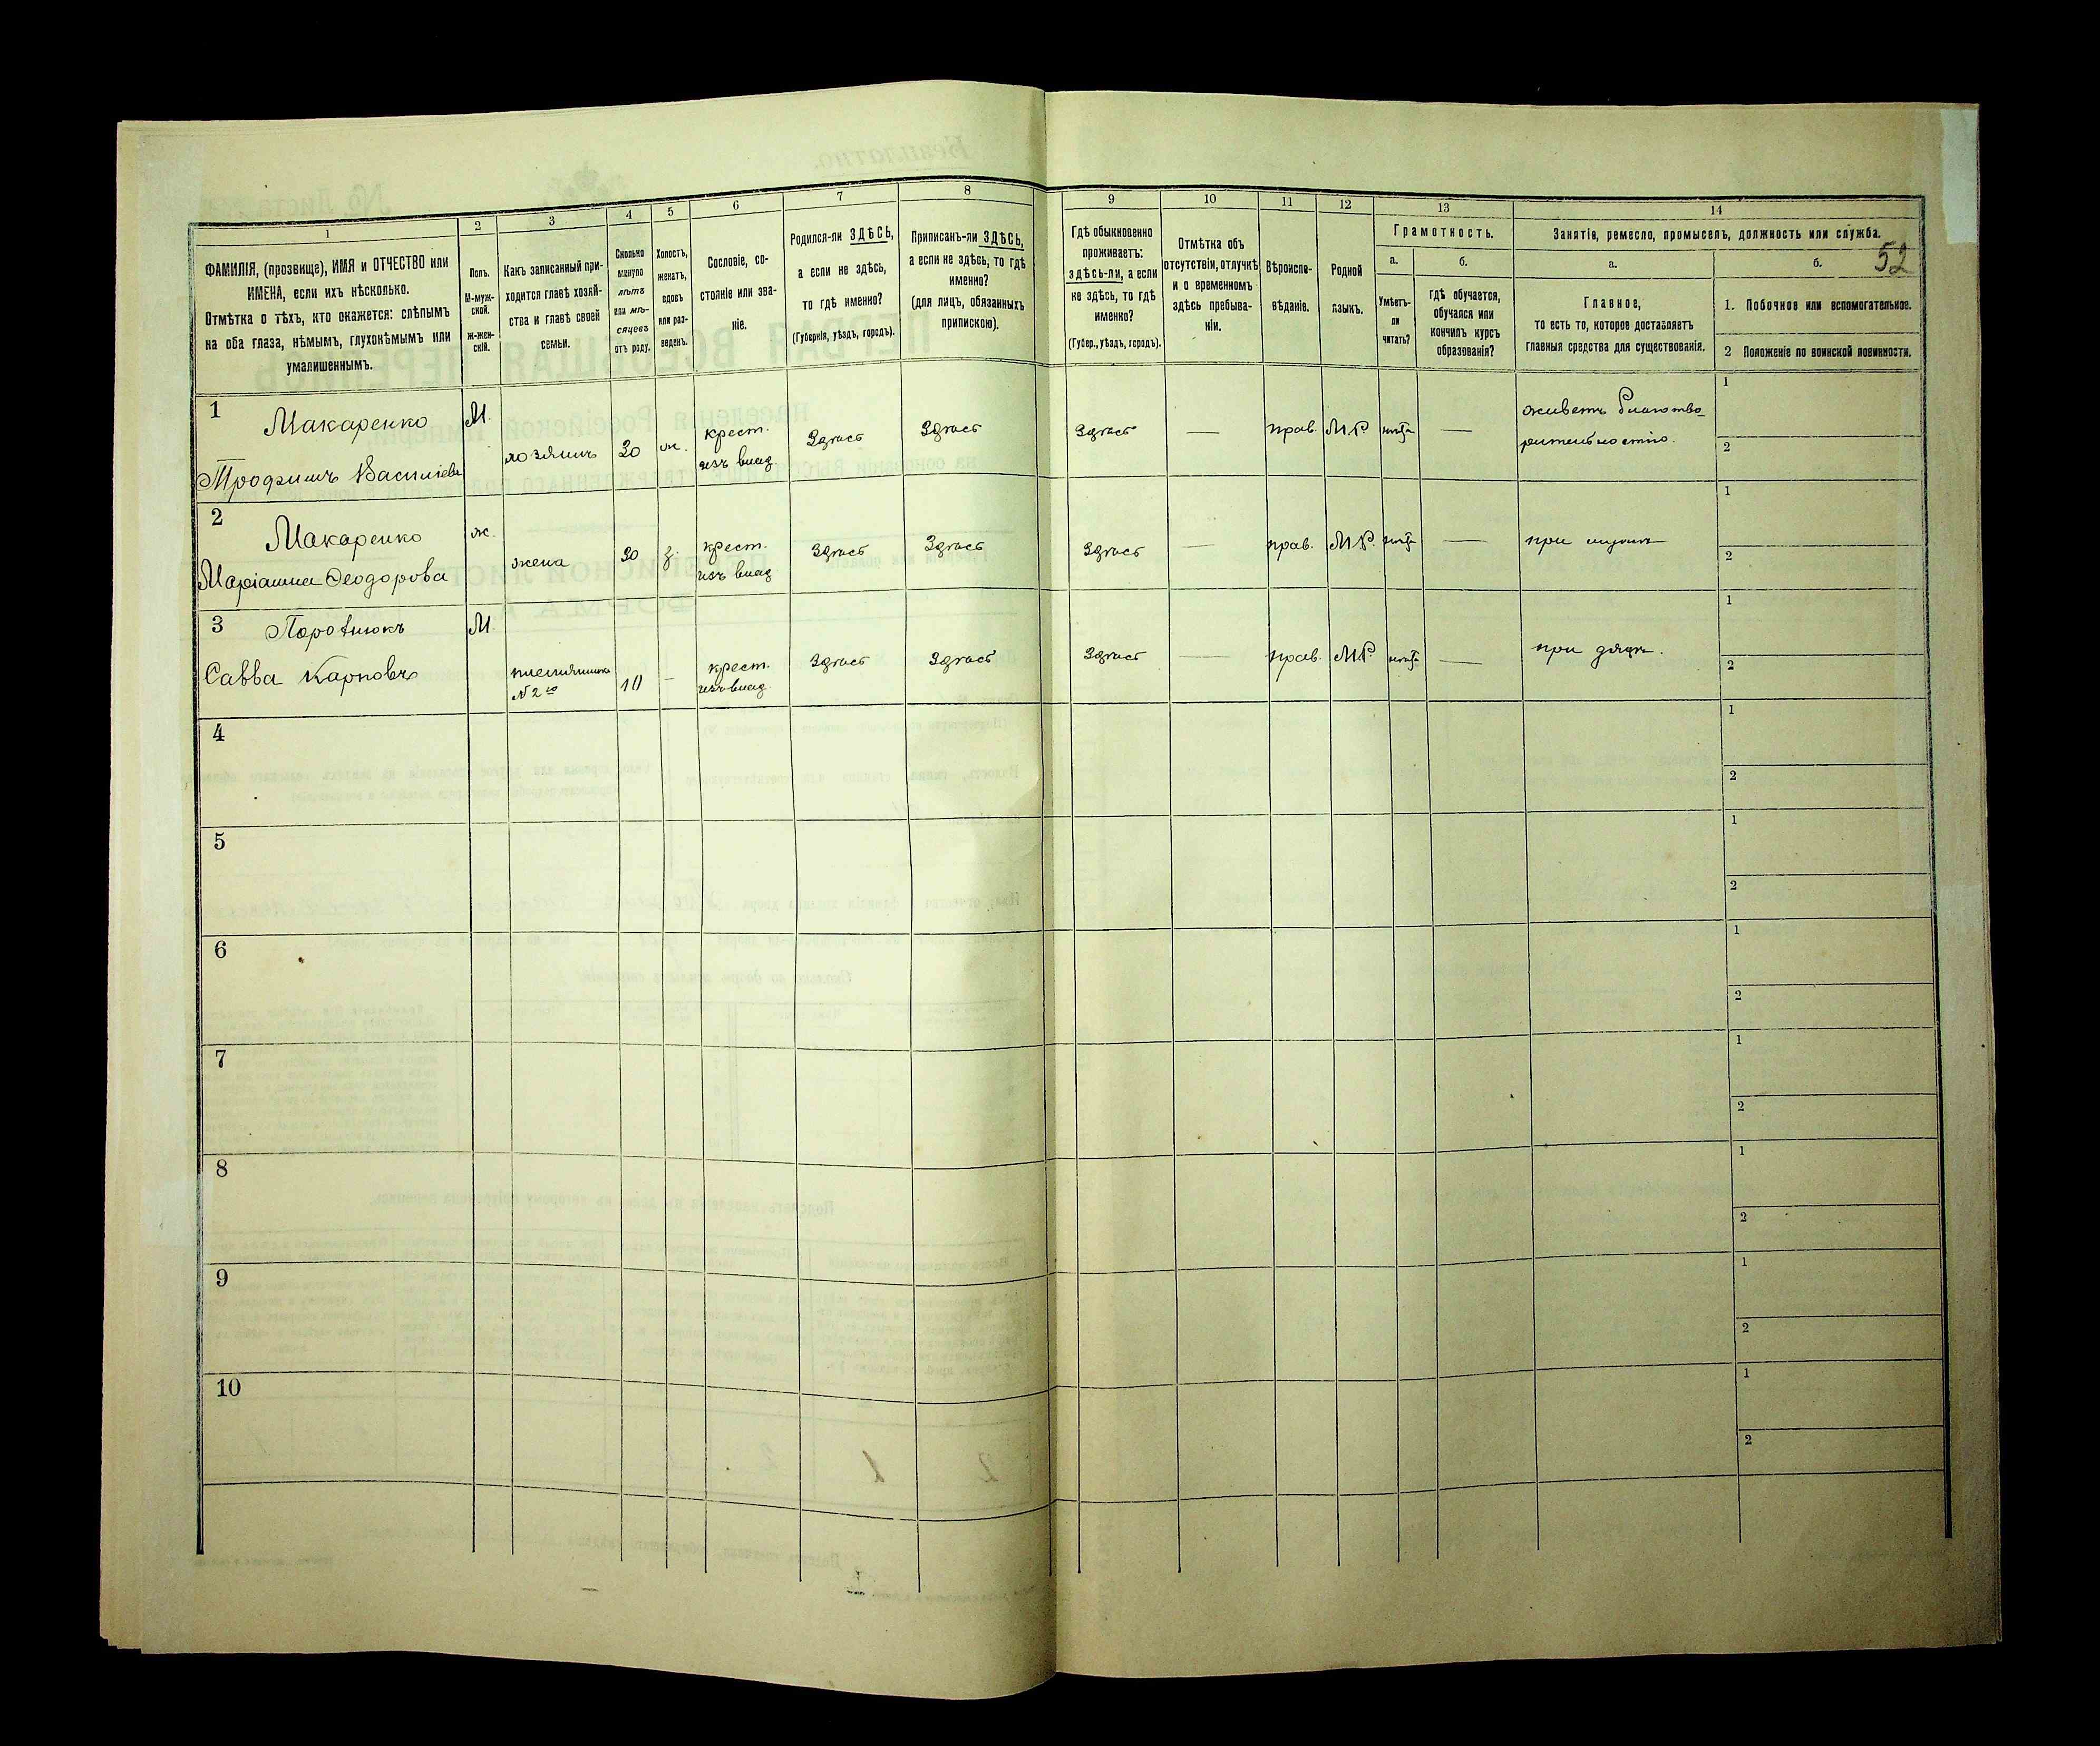 1
2
3
4
5
6
7
8
9
10
11
12
13
14
52
ФАМИЛІЯ, (прозвище), ИМЯ и ОТЧЕСТВО или
ИМЕНА, если ихъ нѣсколько.
Отмѣтка о тѣхъ, кто окажется: слѣпымъ
на оба глаза, нѣмымъ, глухонѣмымъ или
умалишеннымъ.
Полъ.
М-муж-
ской.
ж-жен-
скій.
Какъ записанный при-
ходится главѣ хозяй-
ства и главѣ своей
семьи.
Сколько
минуло
лѣтъ
или мѣ-
сяцевъ
отъ роду.
Холостъ,
женатъ,
вдовъ
или раз-
веденъ.
Сословіе, со-
стояніе или зва-
ніе.
Родился-ли ЗДѢСЬ,
а если не здѣсь,
то гдѣ именно?
(Губернія, уѣздъ, городъ).
Приписанъ-ли ЗДѢСЬ,
а если не здѣсь, то гдѣ
именно?
(для лицъ, обязанныхъ
припискою).
Гдѣ обыкновенно
проживаетъ:
здѣсь-ли, а если
не здѣсь, то гдѣ
именно?
(Губер., уѣздъ, городъ).
Отмѣтка объ
отсутствіи, отлучкѣ
и о временномъ
здѣсь пребыва-
ніи.
Вѣроиспо-
вѣданіе.
Родной
языкъ.
Грамотность.
а.
Умѣетъ-
ли
читать?
б.
гдѣ обучается,
обучался или
кончилъ курсъ
образованія?
Занятіе, ремесло, промыселъ, должность или служба.
а.
Главное,
то есть то, которое доставляетъ
главныя средства для существованія.
б.
1. Побочное или вспомогательное.
2 Положеніе по воинской повинности.
1 Макаренко
Трофимъ Василіевъ
М.
хозяинъ
ж.
крест.
изъ влад
Здѣсь
Здѣсь
Здѣсь
—
прав.
М.Р.
нѣтъ
—
живетъ благотво
рительностію.
1
2
2 Макаренко
Маріанна Ѳеодорова
ж.
жена
з.
крест.
изъ влад
Здѣсь
Здѣсь
Здѣсь
—
прав.
М.Р.
нѣтъ
—
при мужѣ
1
2
3
Савва Карповъ
М
племянникъ
№ 2го
10
—
крест.
изъ влад.
Здѣсь
Здѣсь
Здѣсь
—
прав.
М.Р
нѣтъ
—
при дядѣ.
1
2
4
1
2
5
1
2
6
1
2
7
1
2
8
1
2
9
1
2
10
1
2